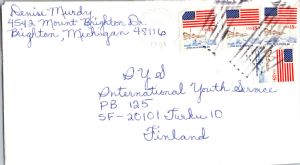 Denise Murdy
4542 Mount Brighton Dr.
Brighton, Michigan 48116
IYS
International Youth Service
PB 125
SF-20101 Turku 10
Finland